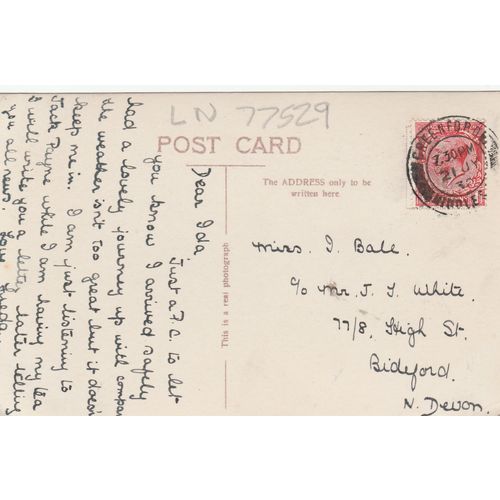 LN 77529
POST CARD
The ADDRESS only to be
written here.
This is a real photograph
GREENFORD
7.30 PM
21 JY
MIDDLE
Dear Ida,
Just a P.C. to let
you know I arrived safely
had a lovely journey up with compan
the weather isn't too great but it doesn'
keep me in. I am just listening to
Jack Payne while I am having my tea
I will write you a letter later telling
you all news. Love
Miss. I. Bale.
c/o Mr. J. J. White.
77/8, High St.
Bideford.
N. Devon.